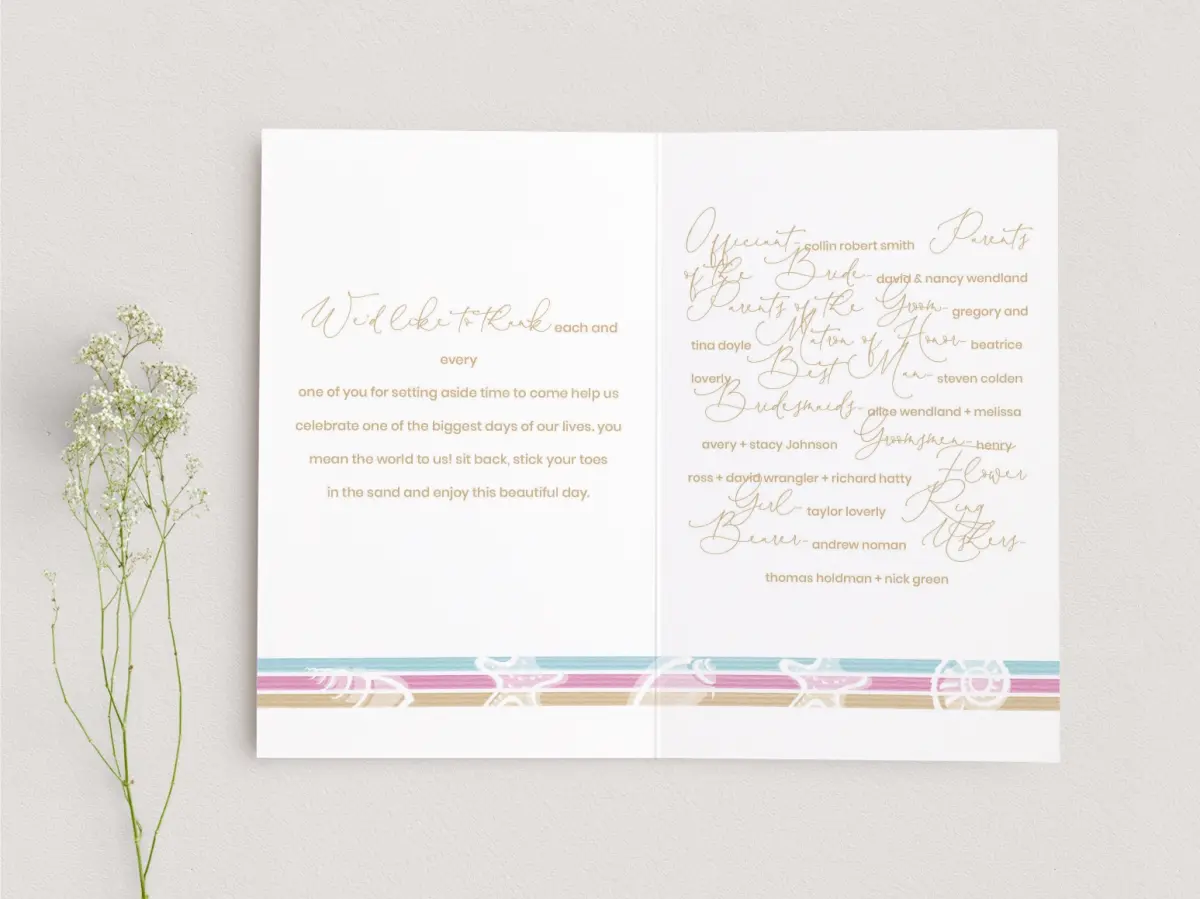 We'd like to thank each and
every
one of you for setting aside time to come help us
celebrate one of the biggest days of our lives. you
mean the world to us! sit back, stick your toes
in the sand and enjoy this beautiful day.
Officiant- collin robert smith Parents
of the Bride- david & nancy wendland
Parents of the Groom- gregory and
tina doyle Matron of Honor- beatrice
loverly Best Man- steven colden
Bridesmaids- alice wendland + melissa
avery + stacy Johnson Groomsmen- henry
ross + david wrangler + richard hatty Flower
Girl- taylor loverly Ring
Bearer- andrew noman Ushers-
thomas holdman + nick green